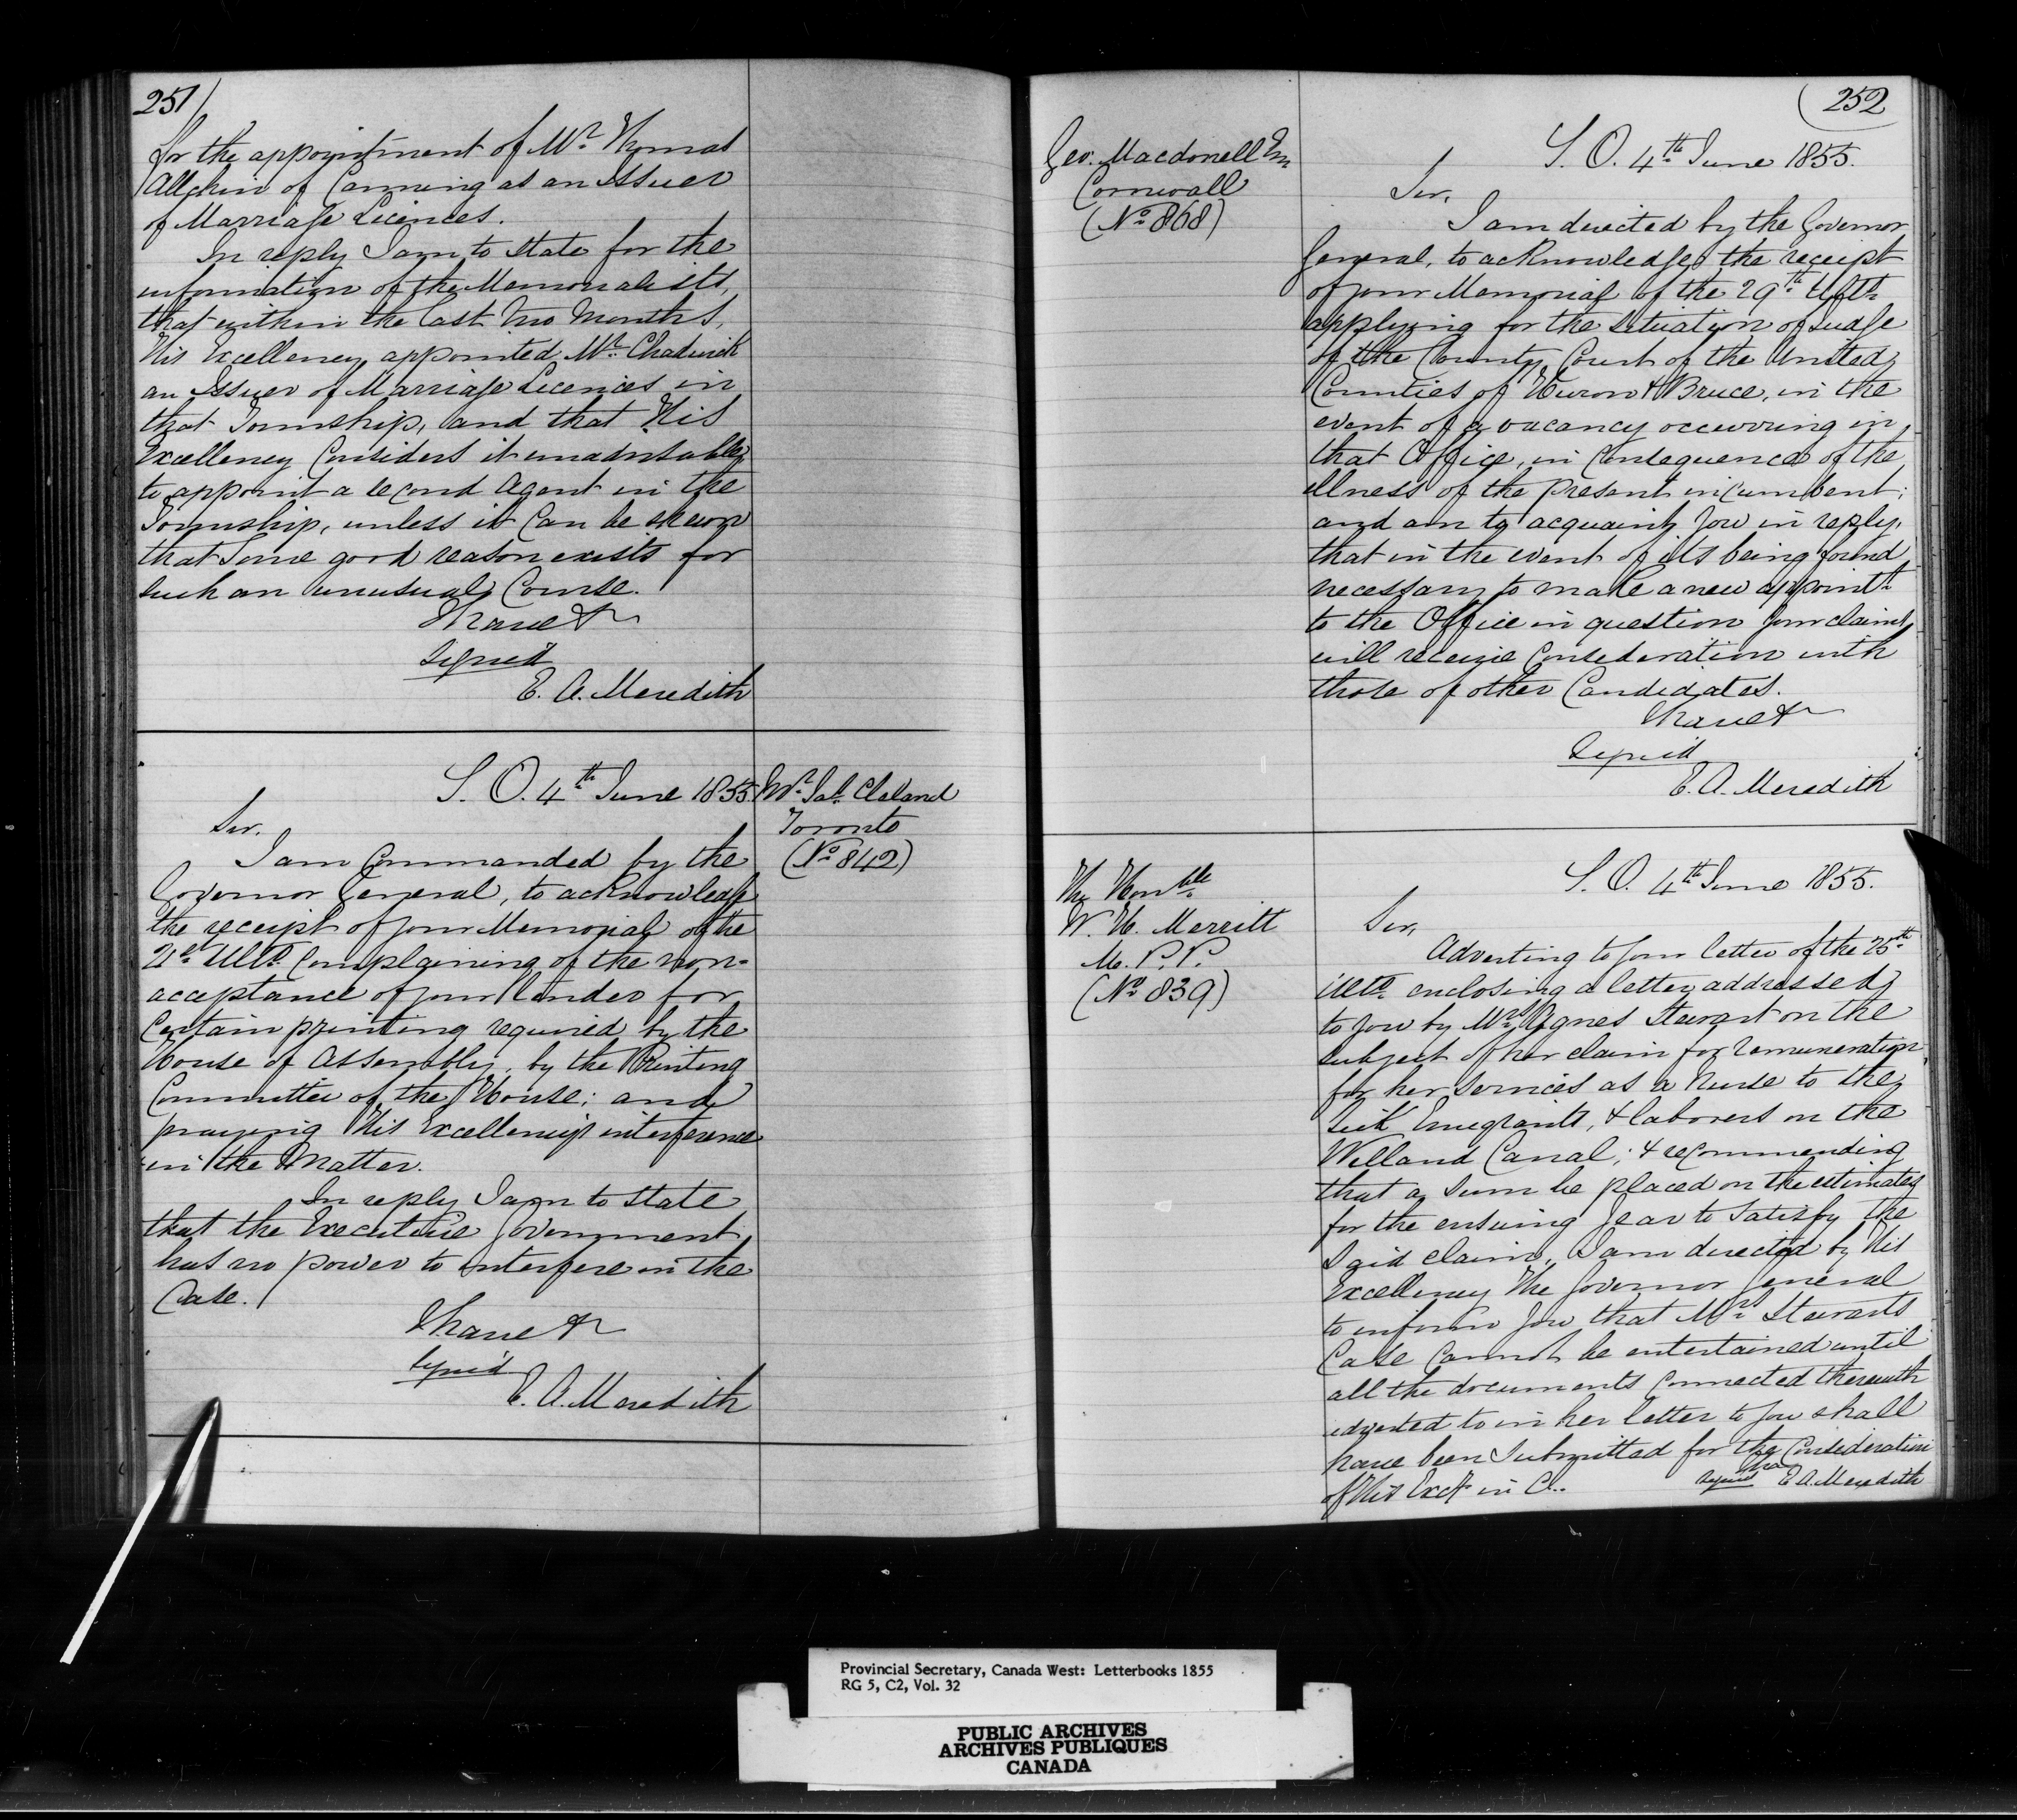 251
for the appointment of Mr. Thomas
Allchin of Canning as an Issuer
of Marriage Licences.
In reply I am to state for the
information of the Memorialists,
that within the last two Months,
His Excellency appointed Mr. Chadwick
an Issuer of Marriage Licences in
that Township, and that His
Excellency Considers it unadvisable
to appoint a second Agent in the
Township, unless it Can be shewn
that Some good reason exists for
such an unusual Course.
I have &c
Signed
E. A. Meredith
S. O. 4th June 1855
Mr. Jas. Cleland
Toronto
(No. 842)
Sir.
I am Commanded by the
Governor General, to acknowledge
the receipt of your Memorial of the
21st Ulto. Complaining of the non-
acceptance of your tender for
Certain printing required by the
House of Assembly, by the Printing
Committee of the House; and
praying His Excellency's interference
in the Matter.
In reply I am to state
that the Executive Government
has no power to interfere in the
Case.
I have &c
Signed
E. A. Meredith
252
Geo. Macdonell Esq
Cornwall
(No. 868)
S. O. 4th June 1855.
Sir,
I am directed by the Governor
General, to acknowledge the receipt
of your Memorial of the 29th Ulto.
applying for the situation of Judge
of the County Court of the United
Counties of Huron & Bruce, in the
event of a vacancy occurring in
that Office, in Consequence of the
illness of the present incumbent;
and am to acquaint you in reply,
that in the event of its being found
necessary to make a new appointt.
to the Office in question your claims
will receive Consideration with
those of other Candidates.
I have &c
Signed
E. A. Meredith
The Honble
W. H. Merritt
M. P. P.
(No. 839)
S. O. 4th June 1855.
Sir,
Adverting to your letter of the 25th
ulto. enclosing a letter addressed
to you by Mrs. Agnes Stewart on the
subject of her claim for remuneration
for her services as a Nurse to the
Sick Emigrants, & laborers on the
Welland Canal; & recommending
that a sum be placed on the estimates
for the ensuing year to satisfy the
said claim, I am directed by His
Excellency The Governor General
to inform you that Mrs. Stewarts
Case Cannot be entertained until
all the documents Connected therewith
adverted to in her letter to you shall
have been Submitted for the Consideration
of His Excy. in C..
I have
Signed E. A. Meredith
Provincial Secretary, Canada West: Letterbooks 1855
RG 5, C2, Vol. 32
PUBLIC ARCHIVES
ARCHIVES PUBLIQUES
CANADA